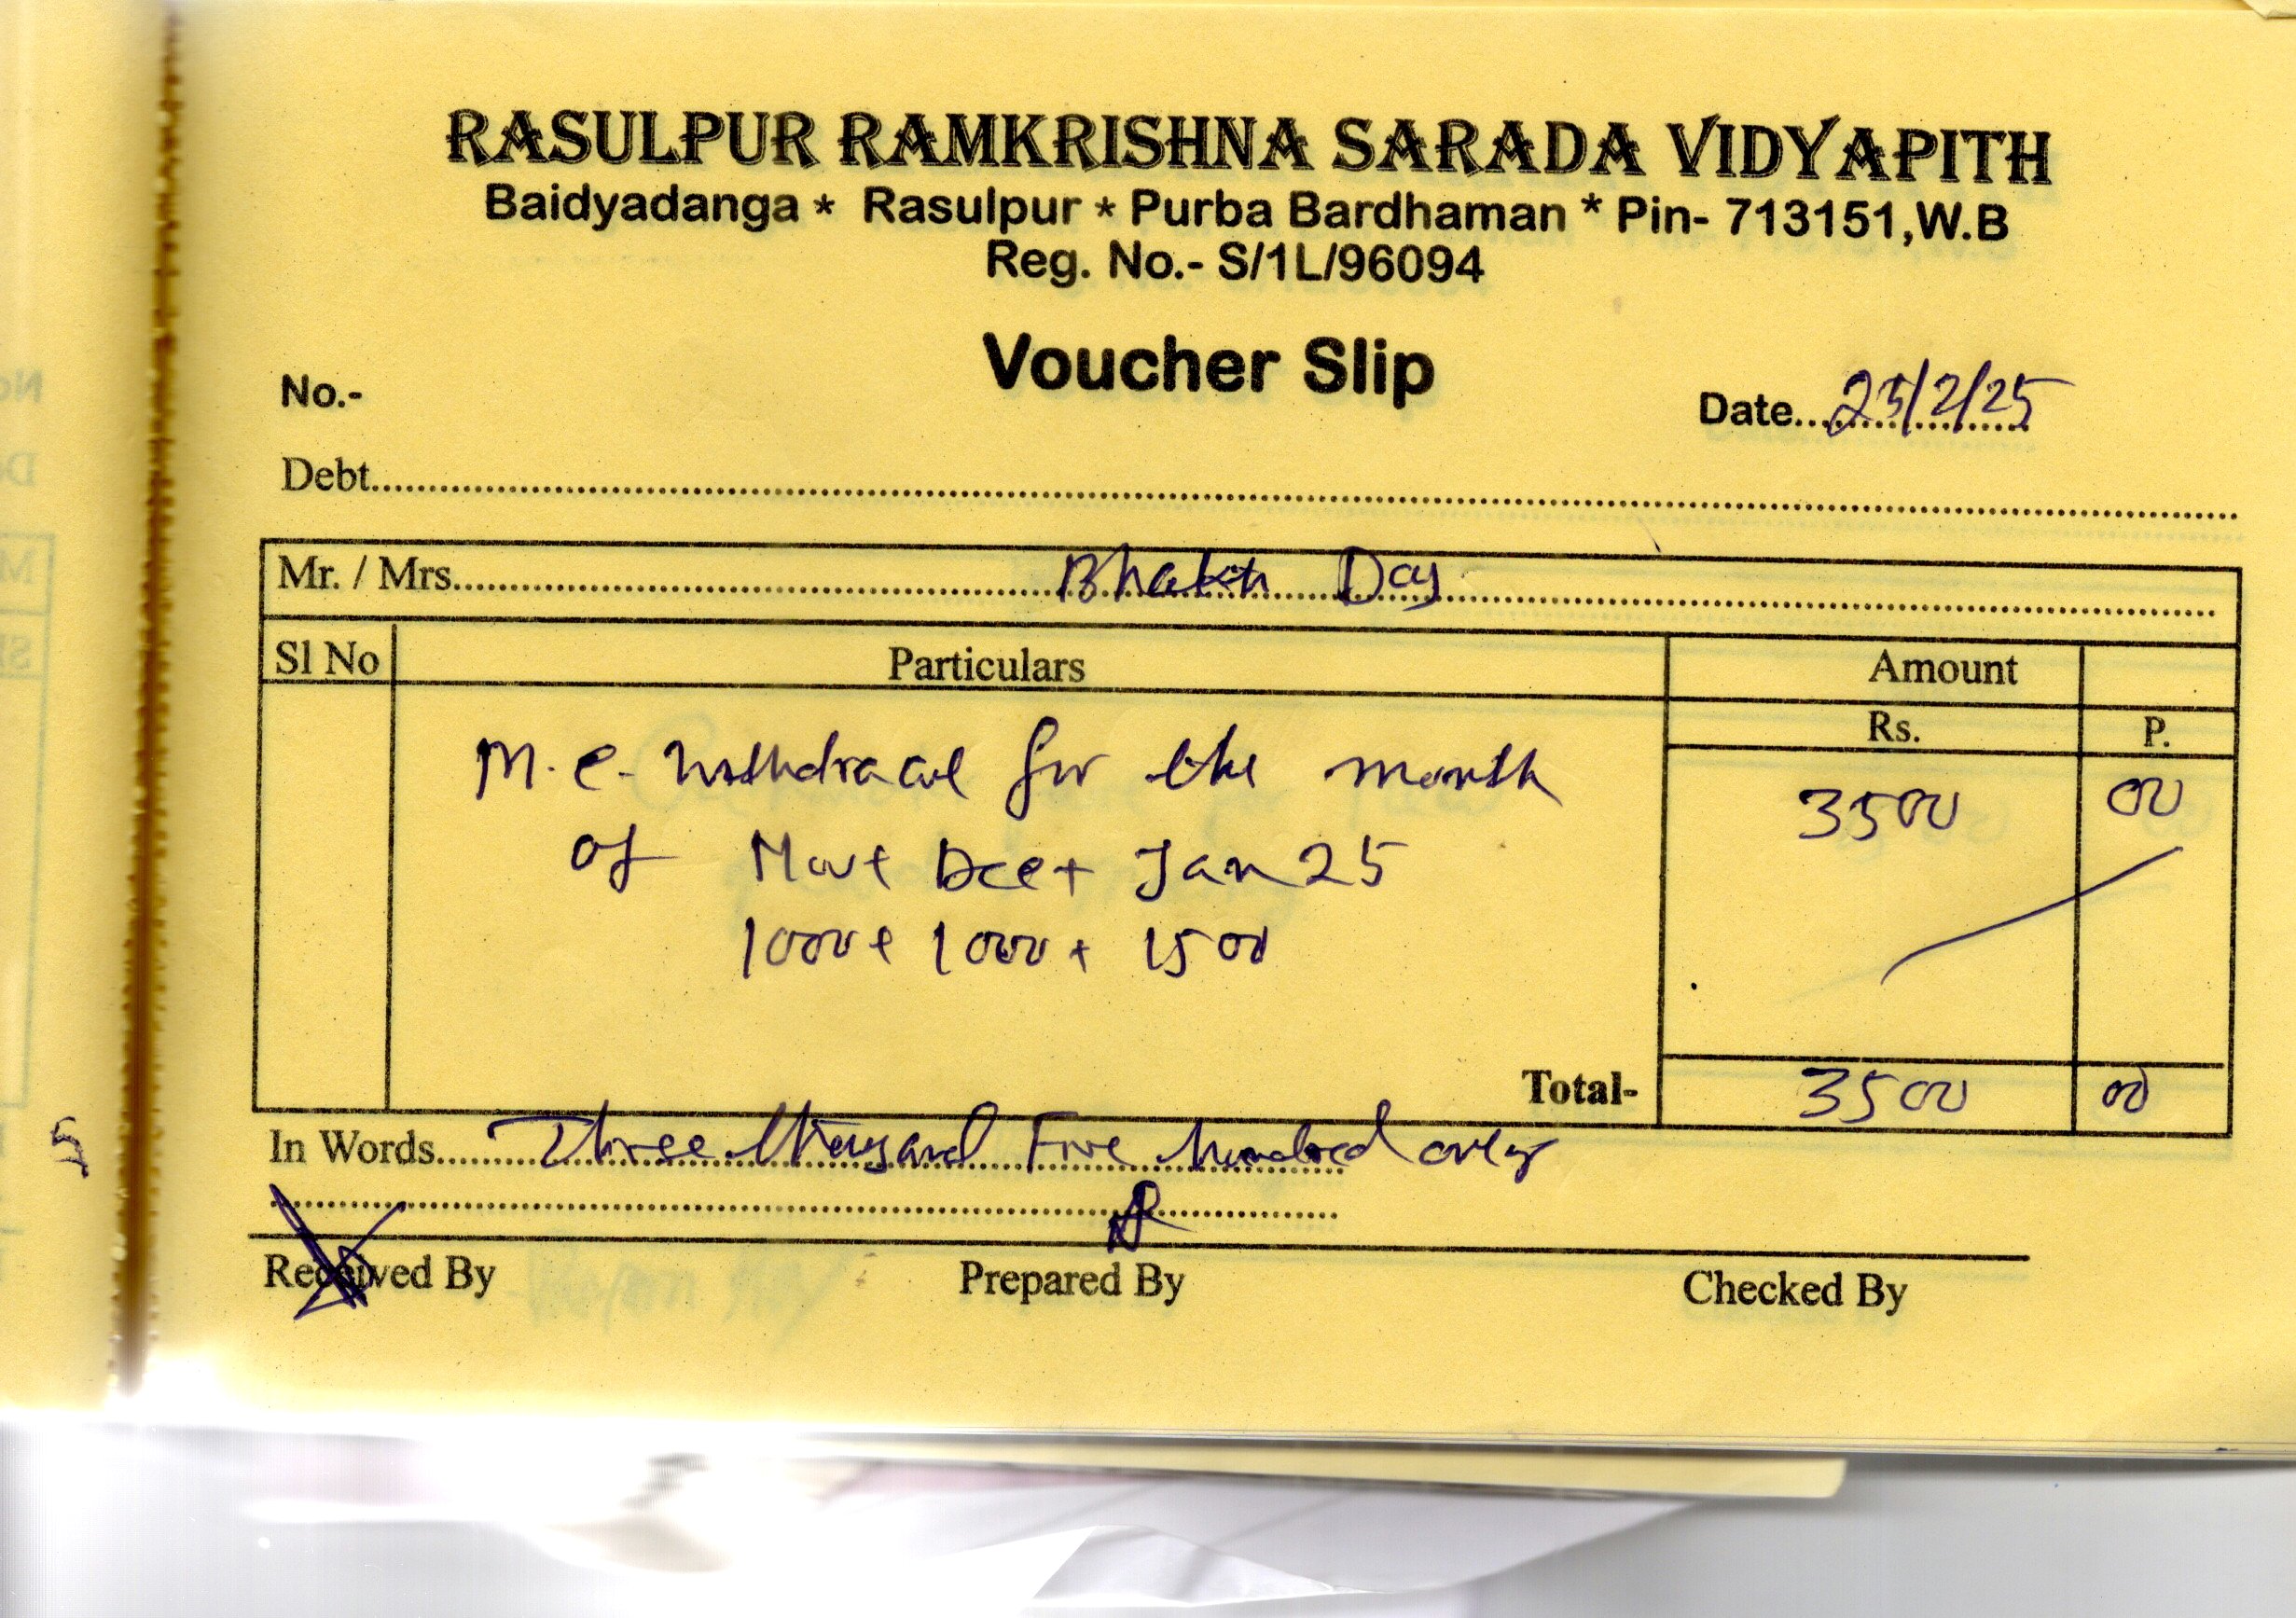 RASULPUR RAMKRISHNA SARADA VIDYAPITH
Baidyadanga * Rasulpur * Purba Bardhaman * Pin- 713151,W.B
Reg. No.- S/1L/96094
Voucher Slip
No.-
Date...25/2/25
Debt
Mr. / Mrs. Das
Sl No Particulars Amount
Rs. P.
M.C. for the month 3500 00
of Nov+ Dec+ Jan 25
1000+ 1000+ 1500
Total- 3500 00
In Words Three thousand Five hundred only
Received By Prepared By Checked By